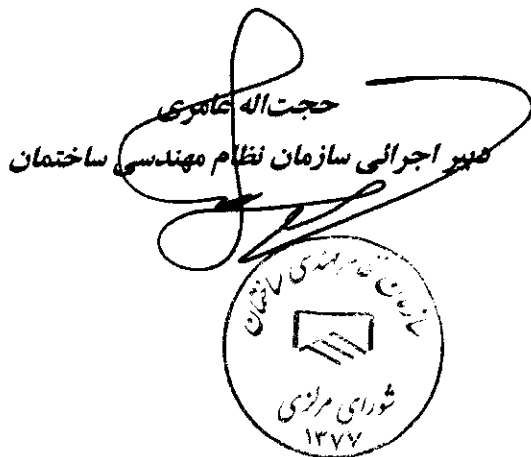 حجت‌اله عامری
دبیر اجرائی سازمان نظام مهندسی ساختمان
سازمان نظام مهندسی ساختمان
شورای مرکزی
۱۳۷۷